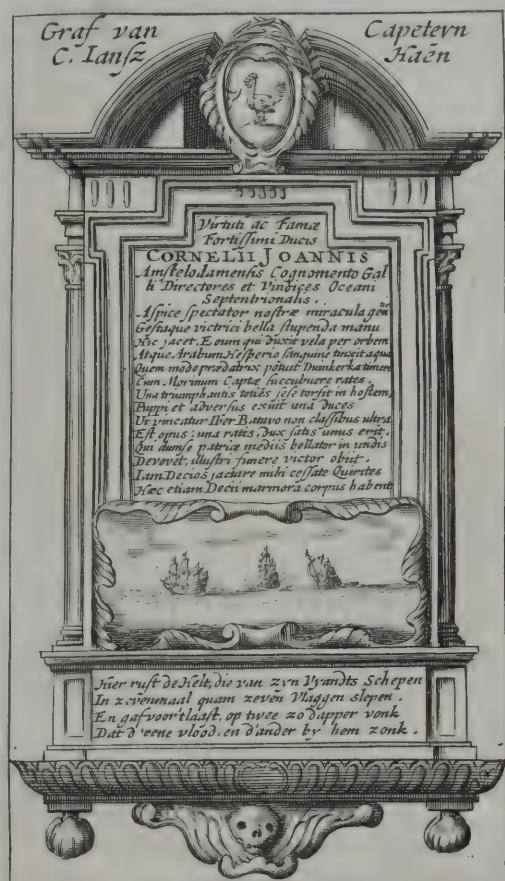 Graf van
C. Iansz
Capeteyn
Haën
Virtuti ac Famæ
Fortissimi Ducis
CORNELII JOANNIS
Amstelodamensis Cognomento Gal
li Directores et Vindices Oceani
Septentrionalis.
Aspice spectator nostræ miracula gentis
Gestaque victrici bella stupenda manu
Hic jacet, Eoum qui duxit vela per orbem
Atque Arabum Hesperio sanguine tinxit aquas
Quem modo prædatrix potuit Duinkerka timere
Cum Morinum Captæ succubuere rates.
Una triumphantis toties sese torsit in hostem,
Puppi et adversus exuit una duces
Ut vincatur Iber Batavo non classibus ultra
Est opus; una ratis, Dux satis unus erit.
Qui dum se patriæ mediis bellator in undis
Devovet, illustri funere victor obiit.
Iam Decios jactare mihi cessate Quirites
Hæc etiam Decii marmora corpus habent
Hier rust de Helt, die van zyn Vyandts Schepen
In zevenmaal quam zeven Vlaggen slepen.
En gaf voor 't laast, op twee zo dapper vonk
Dat d'eene vlood, en d'ander by hem zonk.